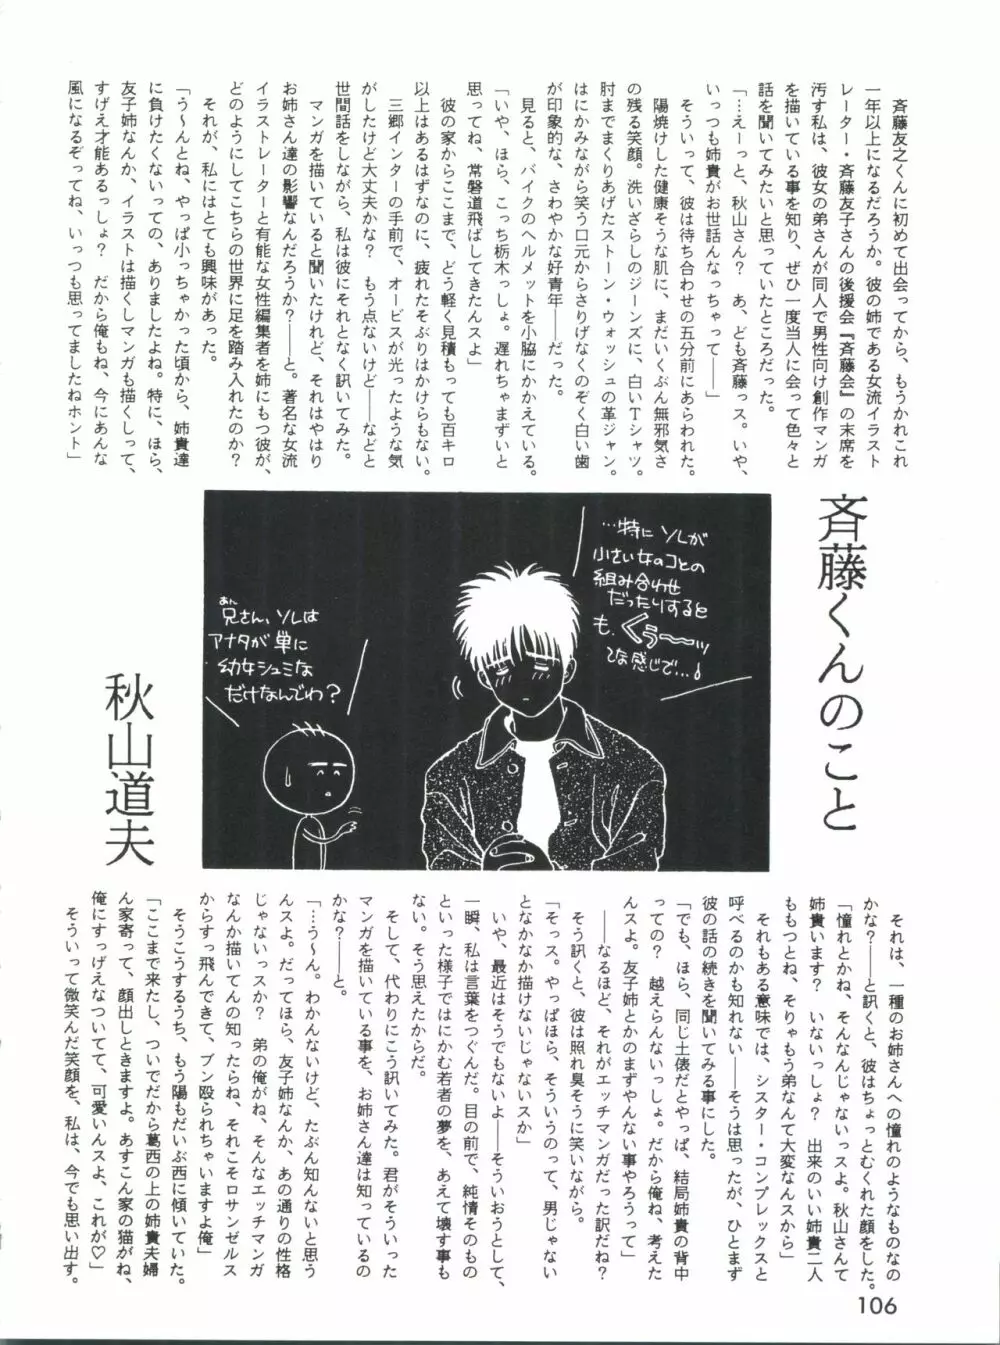 斉藤くんのこと
秋山道夫
斉藤友之くんに初めて出会ってから、もうかれこれ
一年以上になるだろうか。彼の姉である女流イラスト
レーター・斉藤友子さんの後援会『斉藤会』の末席を
汚す私は、彼女の弟さんが同人で男性向け創作マンガ
を描いている事を知り、ぜひ一度当人に会って色々と
話を聞いてみたいと思っていたところだった。
「…えーっと、秋山さん? あ、ども斉藤っス。いや、
いっつも姉貴がお世話んなっちゃって――」
そういって、彼は待ち合わせの五分前にあらわれた。
陽焼けした健康そうな肌に、まだいくぶん無邪気さ
の残る笑顔。洗いざらしのジーンズに、白いTシャツ。
肘までまくりあげたストーン・ウォッシュの革ジャン。
はにかみながら笑う口元からさりげなくのぞく白い歯
が印象的な、さわやかな好青年――だった。
見ると、バイクのヘルメットを小脇にかかえている。
「いや、ほら、こっち栃木っしょ。遅れちゃまずいと
思ってね、常磐道飛ばしてきたんスよ」
彼の家からここまで、どう軽く見積もっても百キロ
以上はあるはずなのに、疲れたそぶりはかけらもない。
三郷インターの手前で、オービスが光ったような気
がしたけど大丈夫かな? もう点ないけど――などと
世間話をしながら、私は彼にそれとなく訊いてみた。
マンガを描いていると聞いたけれど、それはやはり
お姉さん達の影響なんだろうか?――と。著名な女流
イラストレーターと有能な女性編集者を姉にもつ彼が、
どのようにしてこちらの世界に足を踏み入れたのか?
それが、私にはとても興味があった。
「う～んとね、やっぱ小っちゃかった頃から、姉貴達
に負けたくないっての、ありましたよね。特に、ほら、
友子姉なんか、イラストは描くしマンガも描くしって、
すげえ才能あるっしょ? だから俺もね、今にあんな
風になるぞってね、いっつも思ってましたねホント」
…特にソレが
小さい女のコとの
組み合わせ
だったりすると
も、くぅ――ッ
てな感じで…!
あん
兄さん、ソレは
アナタが単に
幼女シュミな
だけなんでわ?
それは、一種のお姉さんへの憧れのようなものなの
かな?――と訊くと、彼はちょっとむくれた顔をした。
「憧れとかね、そんなんじゃないっスよ。秋山さんて
姉貴います? いないっしょ? 出来のいい姉貴二人
ももつとね、そりゃもう弟なんて大変なんスから」
それもある意味では、シスター・コンプレックスと
呼べるのかも知れない――そうは思ったが、ひとまず
彼の話の続きを聞いてみる事にした。
「でも、ほら、同じ土俵だとやっぱ、結局姉貴の背中
っての? 越えらんないっしょ。だから俺ね、考えた
んスよ。友子姉とかのまずやんない事やろうって」
――なるほど、それがエッチマンガだった訳だね?
そう訊くと、彼は照れ臭そうに笑いながら。
「そっス。やっぱほら、そういうのって、男じゃない
となかなか描けないじゃないスか」
いや、最近はそうでもないよ――そういおうとして、
一瞬、私は言葉をつぐんだ。目の前で、純情そのもの
といった様子ではにかむ若者の夢を、あえて壊す事も
ない。そう思えたからだ。
そして、代わりにこう訊いてみた。君がそういった
マンガを描いている事を、お姉さん達は知っているの
かな?――と。
「…う～ん。わかんないけど、たぶん知んないと思う
んスよ。だってほら、友子姉なんか、あの通りの性格
じゃないっスか? 弟の俺がね、そんなエッチマンガ
なんか描いてんの知ったらね、それこそロサンゼルス
からすっ飛んできて、ブン殴られちゃいますよ俺」
そうこうするうち、もう陽もだいぶ西に傾いていた。
「ここまで来たし、ついでだから葛西の上の姉貴夫婦
ん家寄って、顔出しときますよ。あすこん家の猫がね、
俺にすっげえなついてて、可愛いんスよ、これが♡」
そういって微笑んだ笑顔を、私は、今でも思い出す。
106